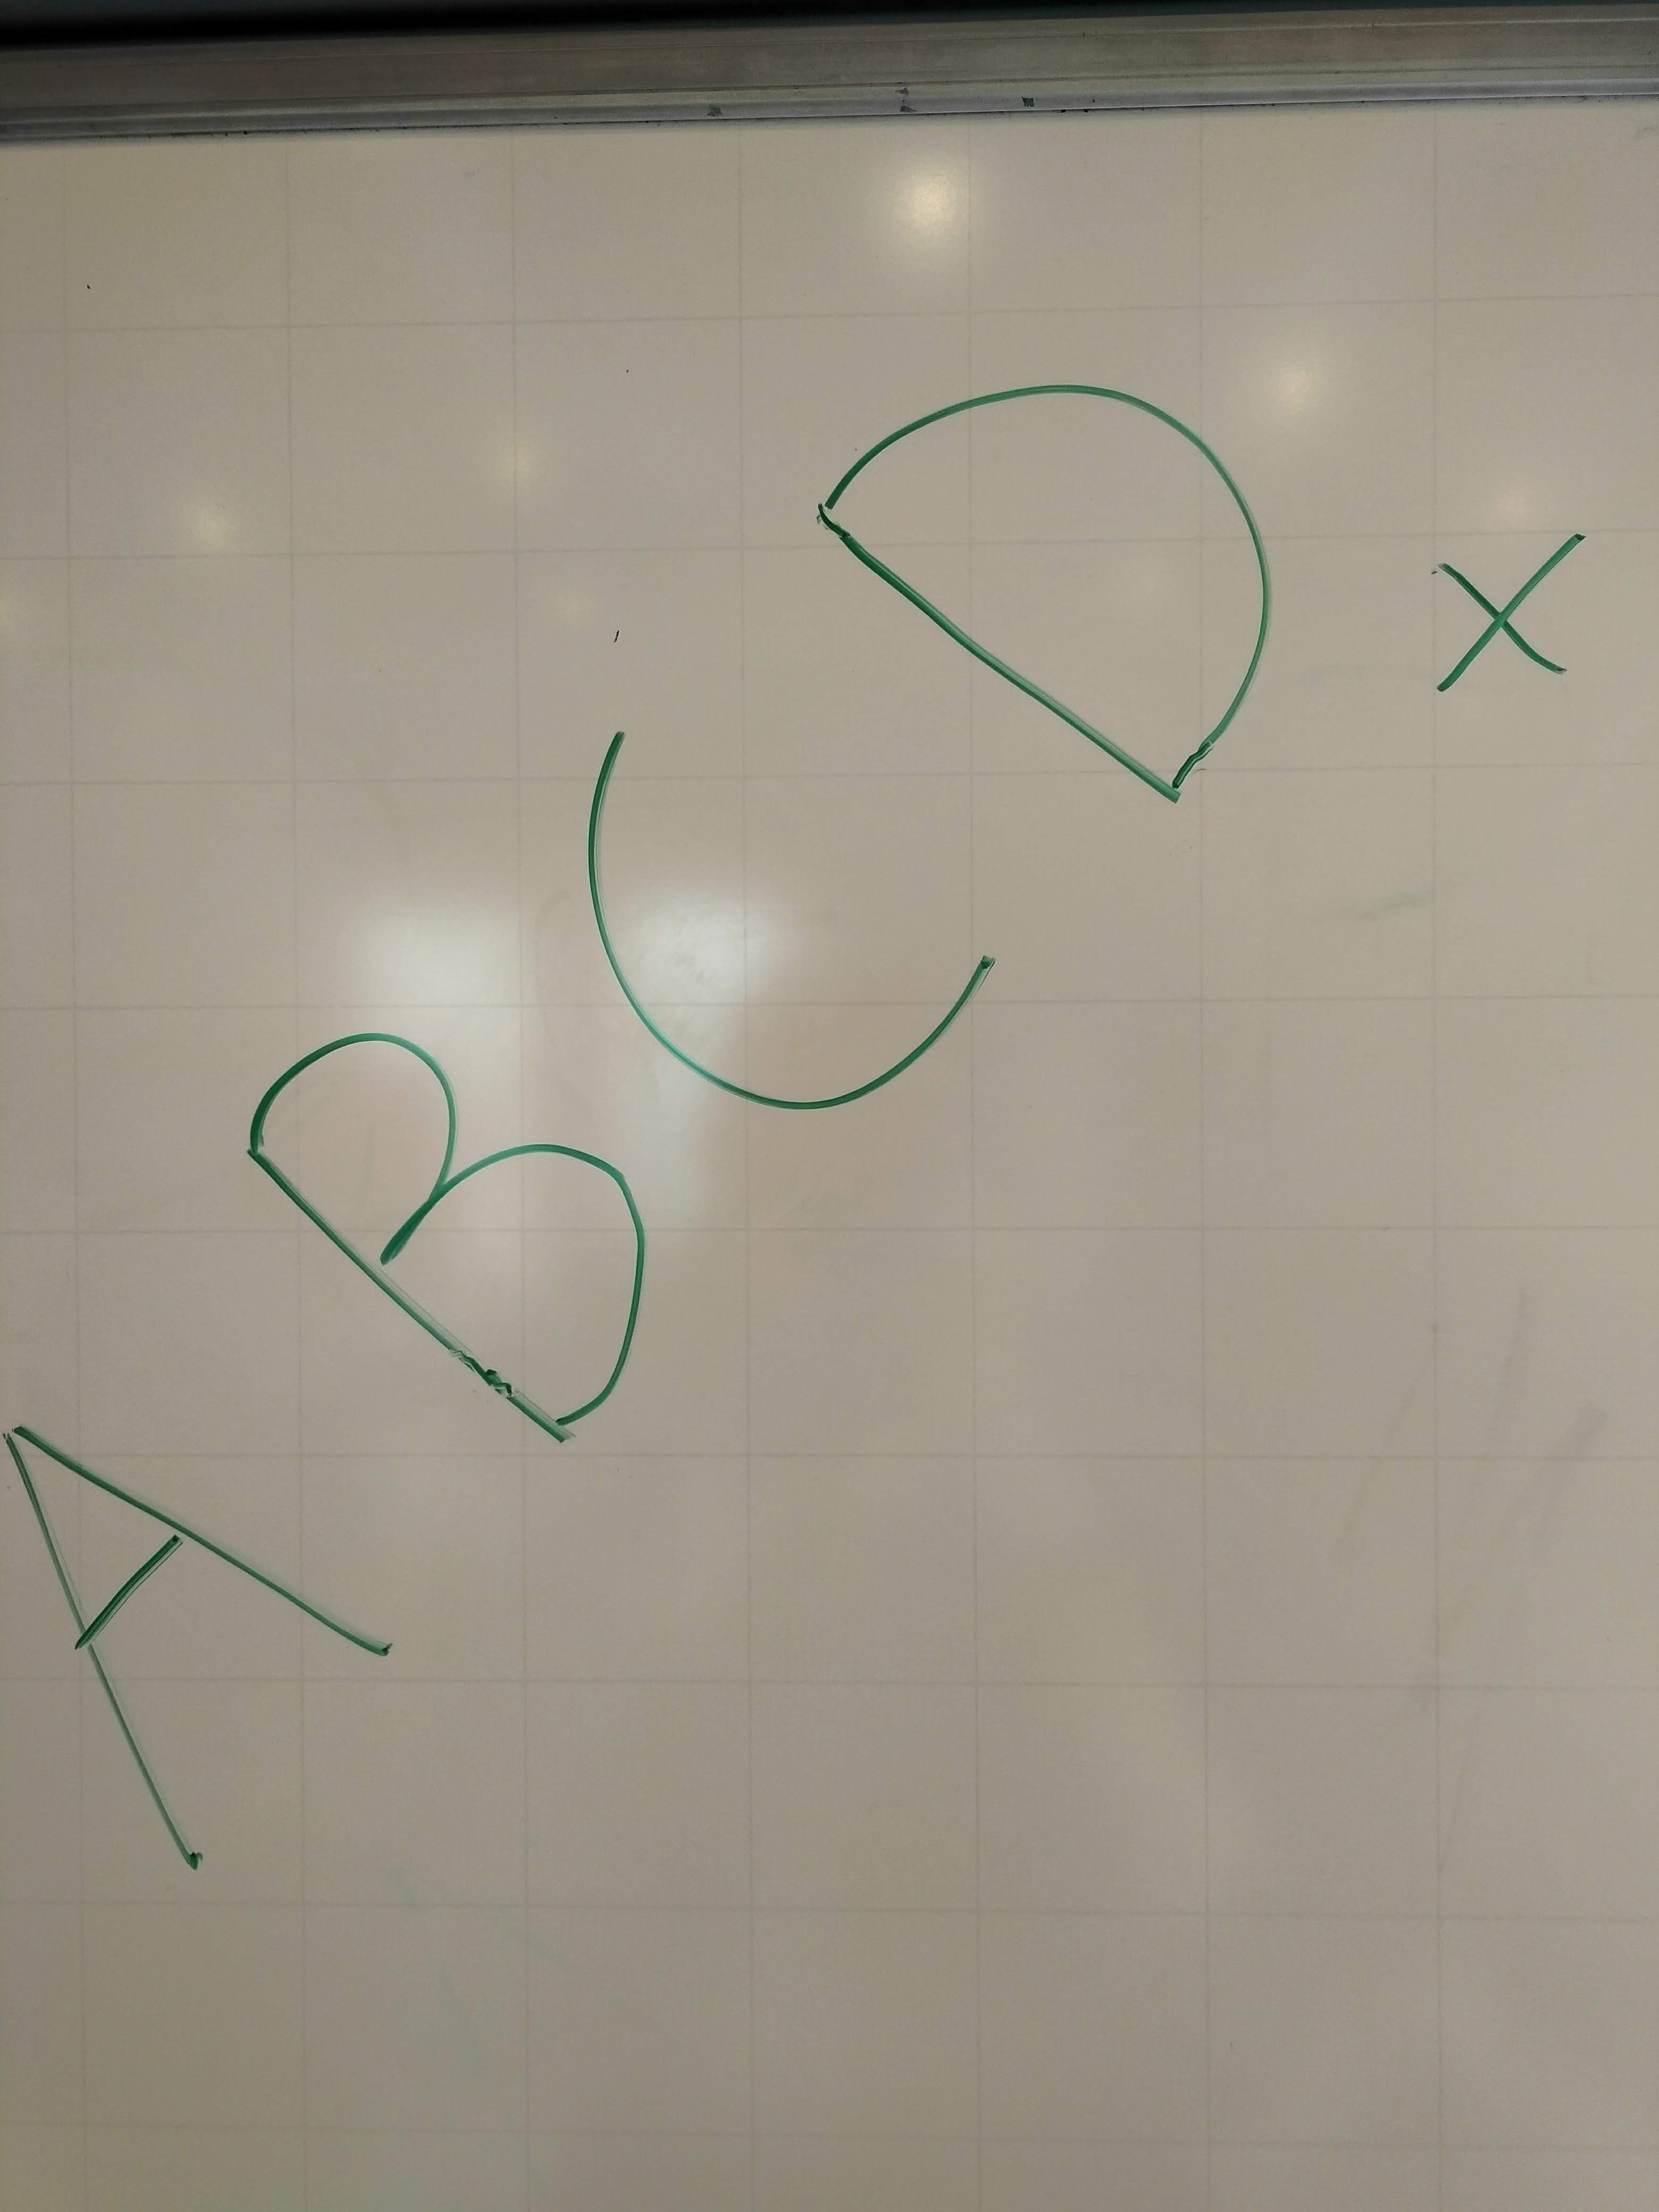 ABCD x